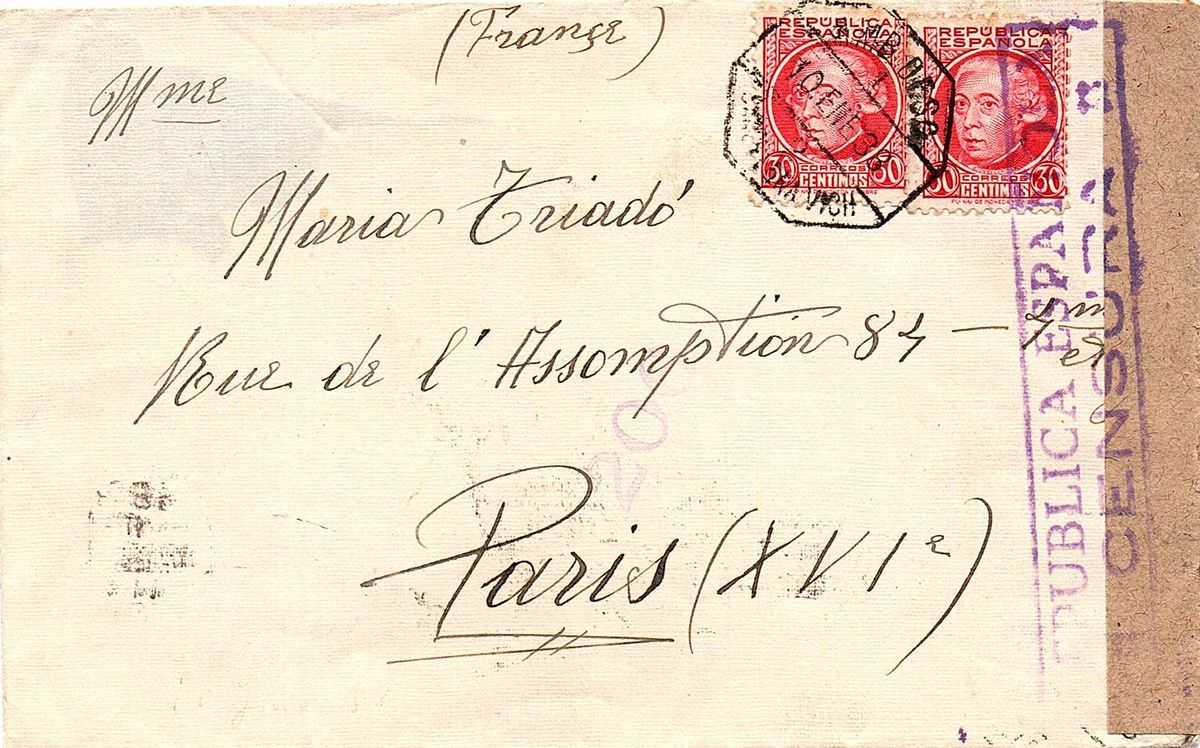 (Françe)
Mme
Maria Triadó
Rue de l'Assomption 84 — 7m er
Paris (XVIe)
REPÚBLICA ESPAÑOLA
30 CORREOS CENTIMOS 30
REPÚBLICA ESPAÑOLA
30 CORREOS CENTIMOS 30
AMB. DESC.
10 ENE 38
VICH
EPUBLICA ESPAÑ
CENSURA
20